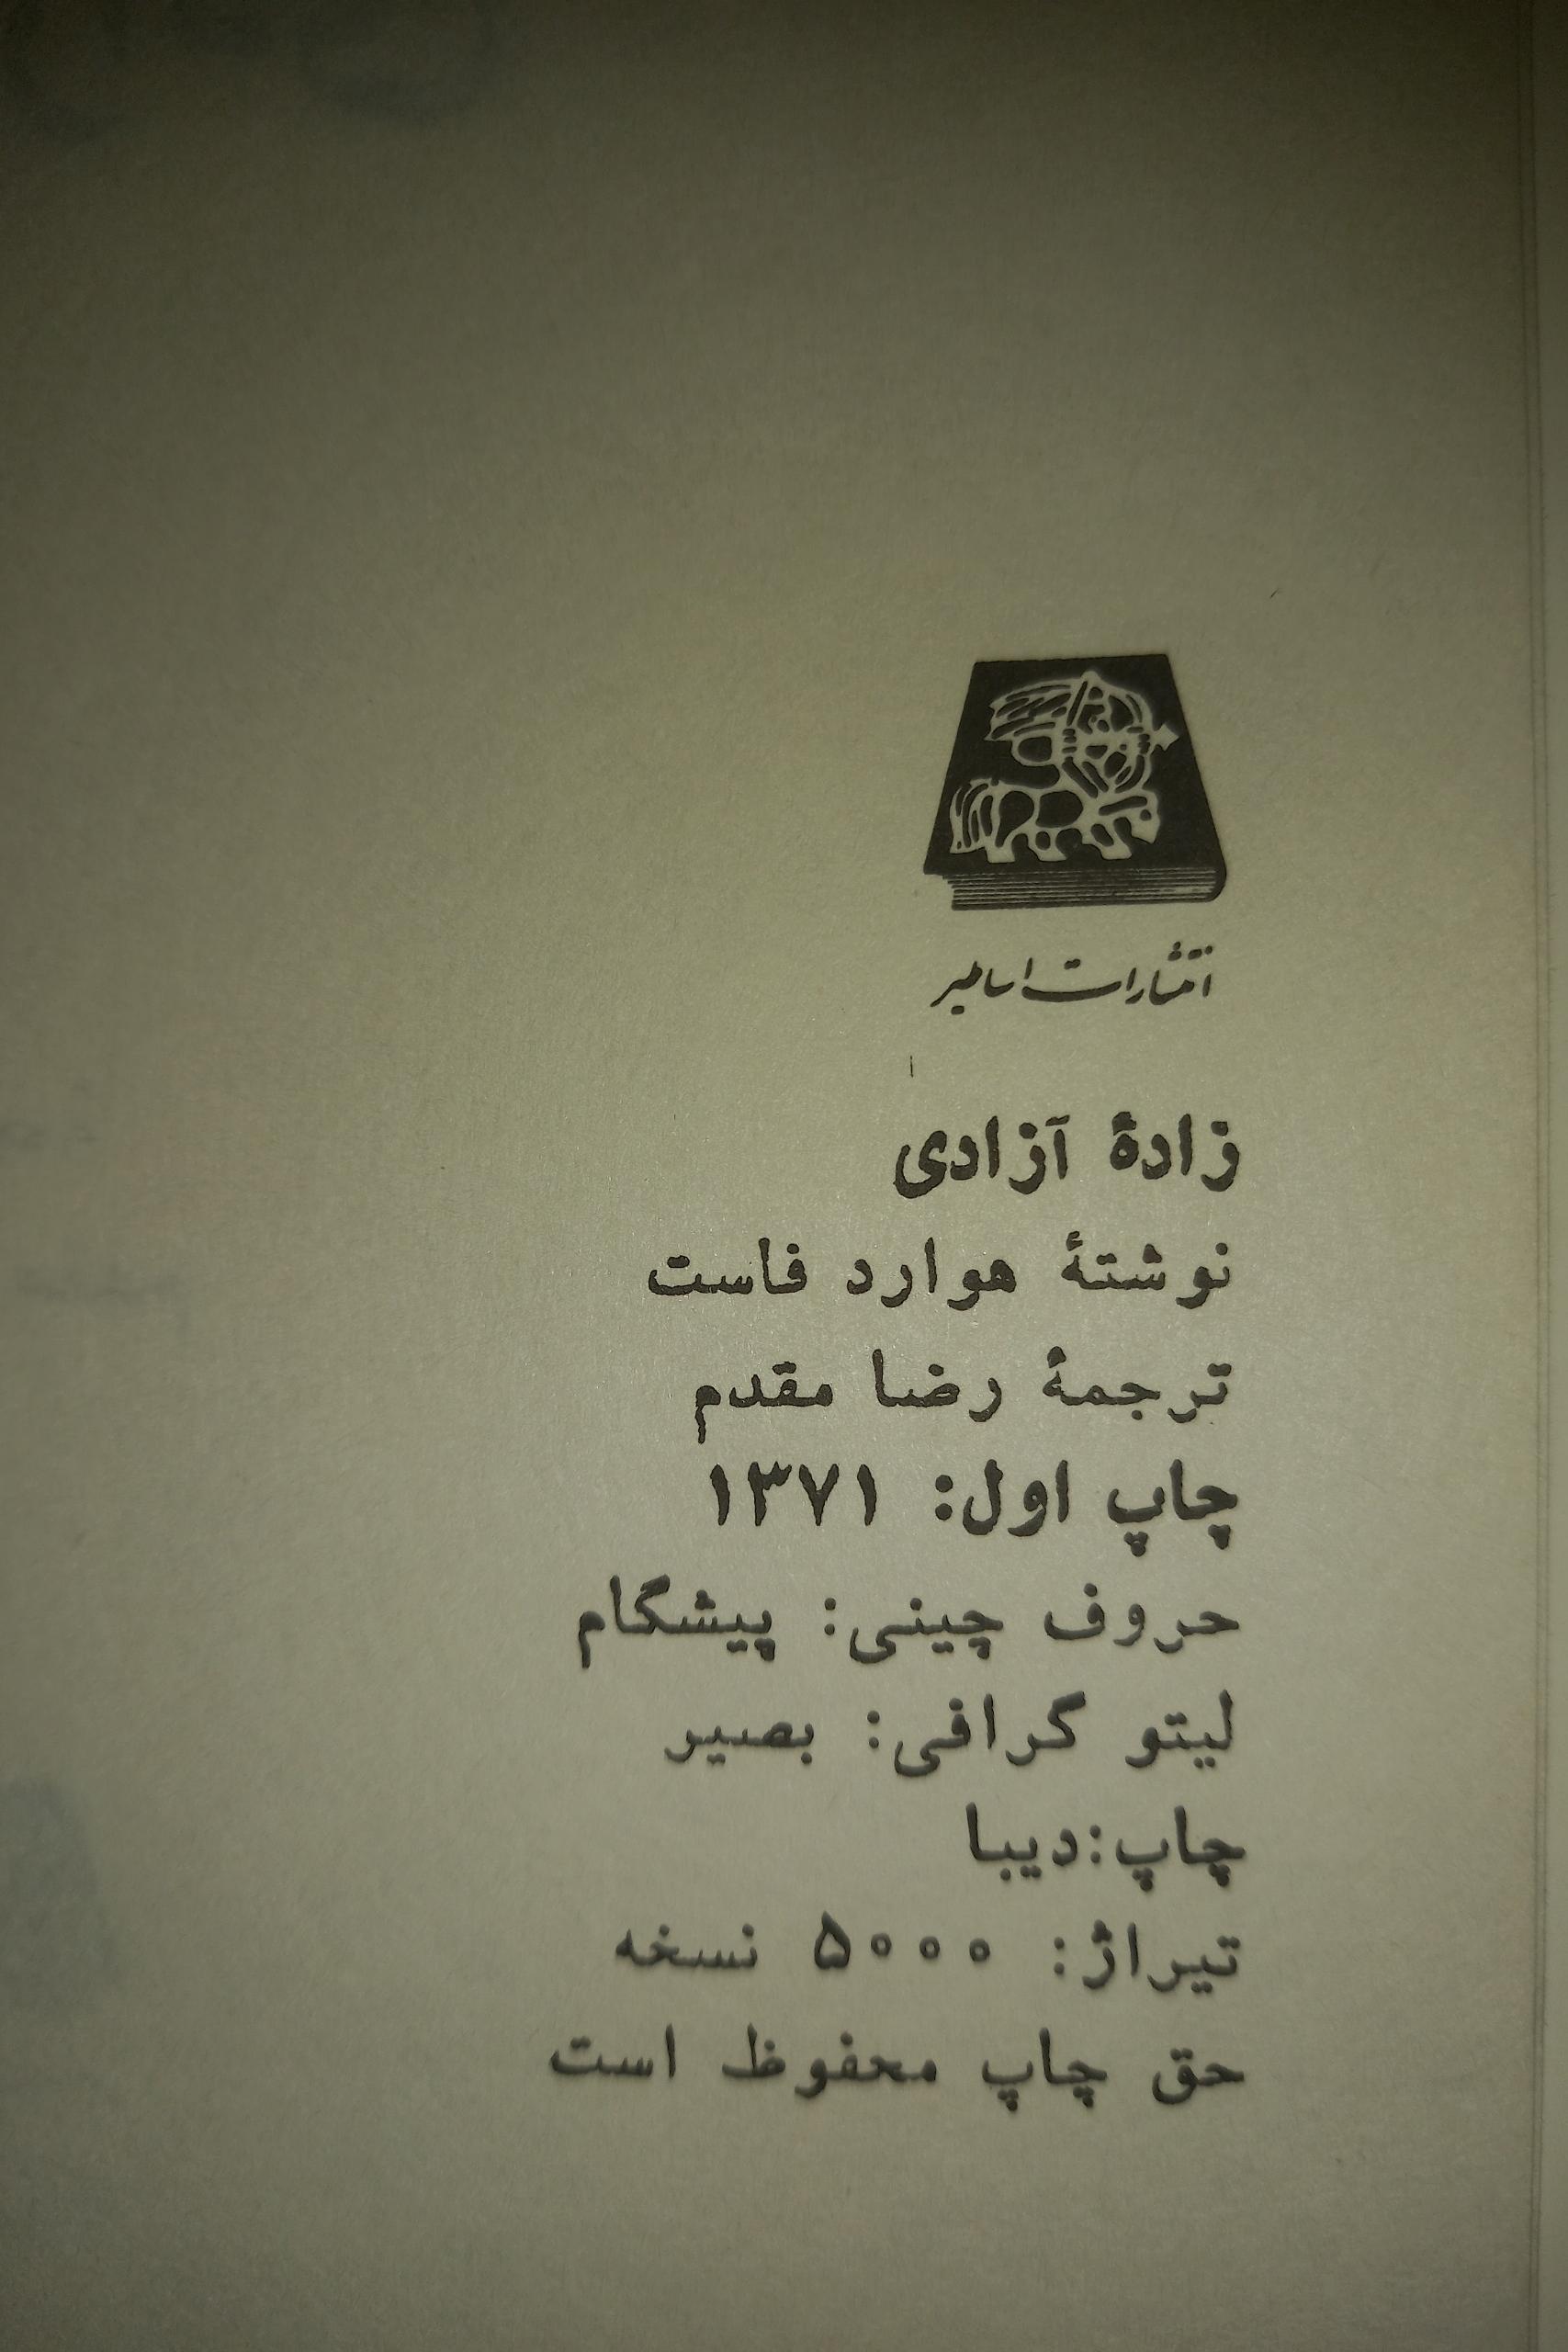 انتشارات اساطیر
زادهٔ آزادی
نوشتهٔ هوارد فاست
ترجمهٔ رضا مقدم
چاپ اول: ۱۳۷۱
حروف چینی: پیشگام
لیتو گرافی: بصیر
چاپ:دیبا
تیراژ: ۵۰۰۰ نسخه
حق چاپ محفوظ است